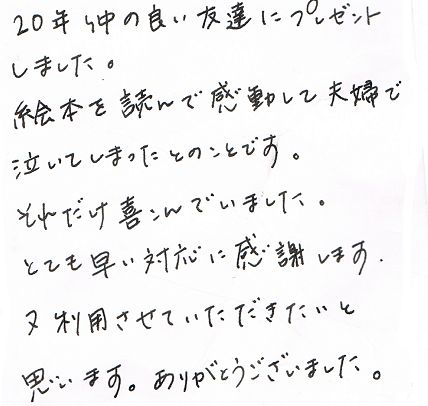 20年仲の良い友達にプレゼント
しました。
絵本を読んで感動して夫婦で
泣いてしまったとのことです。
それだけ喜こんでいました。
とても早い対応に感謝します.
又利用させていただきたいと
思います。ありがとうございました。